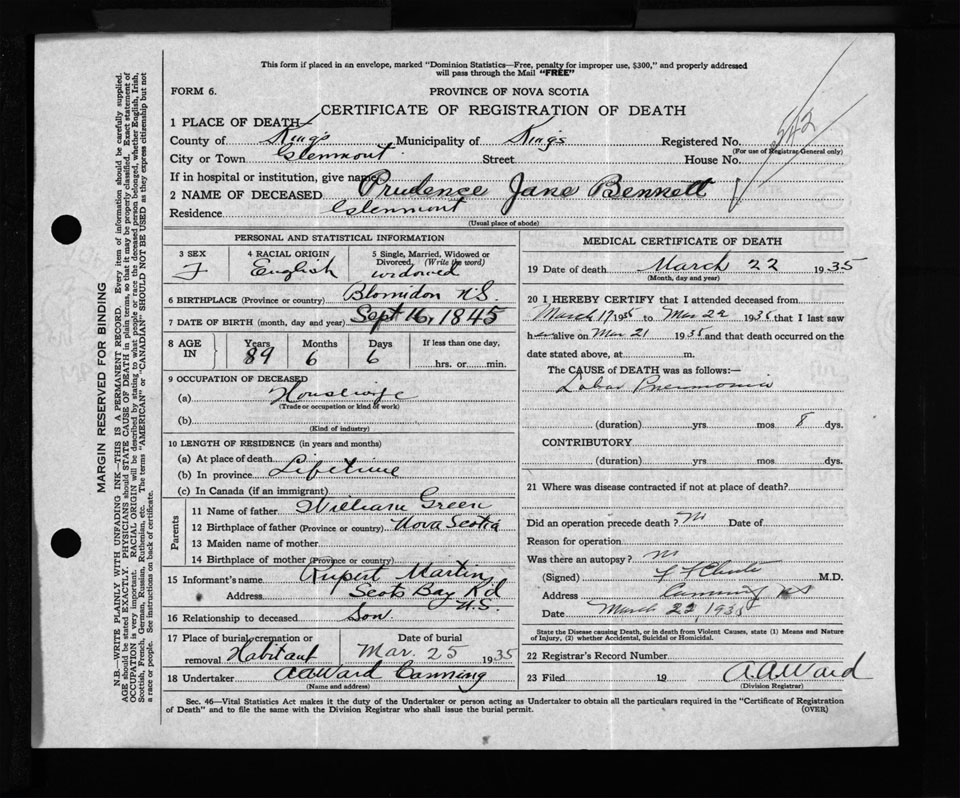 This form if placed in an envelope, marked "Dominion Statistics—Free, penalty for improper use, $300," and properly addressed
will pass through the Mail "FREE"
FORM 6.
PROVINCE OF NOVA SCOTIA
CERTIFICATE OF REGISTRATION OF DEATH
1 PLACE OF DEATH
County of Kings Municipality of Kings Registered No. 542
(For use of Registrar General only)
City or Town Glenmont Street House No.
If in hospital or institution, give name
2 NAME OF DECEASED Prudence Jane Bennett
Residence Glenmont
(Usual place of abode)
PERSONAL AND STATISTICAL INFORMATION
3 SEX 4 RACIAL ORIGIN 5 Single, Married, Widowed or
Divorced. (Write the word)
F English widowed
6 BIRTHPLACE (Province or country) Blomidon N.S.
7 DATE OF BIRTH (month, day and year) Sept 16, 1845
8 AGE IN Years Months Days If less than one day,
89 6 6 hrs. or min.
9 OCCUPATION OF DECEASED
(a) Housewife
(Trade or occupation or kind of work)
(b)
(Kind of industry)
10 LENGTH OF RESIDENCE (in years and months)
(a) At place of death
(b) In province Lifetime
(c) In Canada (if an immigrant)
Parents
11 Name of father William Green
12 Birthplace of father (Province or country) Nova Scotia
13 Maiden name of mother
14 Birthplace of mother (Province or country)
15 Informant's name Rupert Martin
Address Scots Bay Rd
N.S.
16 Relationship to deceased Son
17 Place of burial, cremation or Date of burial
removal Habitant Mar. 25 1935
18 Undertaker A A Ward Canning
(Name and address)
MEDICAL CERTIFICATE OF DEATH
19 Date of death March 22 1935
(Month, day and year)
20 I HEREBY CERTIFY that I attended deceased from
March 19 1935 to Mar 22 1935 that I last saw
h er alive on Mar 21 1935 and that death occurred on the
date stated above, at m.
The CAUSE of DEATH was as follows:—
Lobar Pneumonia
(duration) yrs. mos. 8 dys.
CONTRIBUTORY
(duration) yrs. mos. dys.
21 Where was disease contracted if not at place of death?
Did an operation precede death? No Date of
Reason for operation
Was there an autopsy? No
(Signed) M.D.
Address Canning NS
Date March 22 1935
State the Disease causing Death, or in death from Violent Causes, state (1) Means and Nature
of Injury, (2) whether Accidental, Suicidal or Homicidal.
22 Registrar's Record Number
23 Filed 19 A.A.Ward
(Division Registrar)
Sec. 46—Vital Statistics Act makes it the duty of the Undertaker or person acting as Undertaker to obtain all the particulars required in the "Certificate of Registration
of Death" and to file the same with the Division Registrar who shall issue the burial permit. (OVER)
MARGIN RESERVED FOR BINDING
N.B.—WRITE PLAINLY WITH UNFADING INK—THIS IS A PERMANENT RECORD. Every item of information should be carefully supplied.
AGE should be stated EXACTLY. PHYSICIANS should STATE CAUSE OF DEATH in plain terms, so that it may be properly classified. Exact statement of
OCCUPATION is very important. RACIAL ORIGIN will be described by stating to what people or race the deceased person belonged, whether English, Irish,
Scottish, French, German, Russian, Ruthenian, etc. The terms "AMERICAN" or "CANADIAN" SHOULD NOT BE USED as they express citizenship but not
a race or people. See instructions on back of certificate.